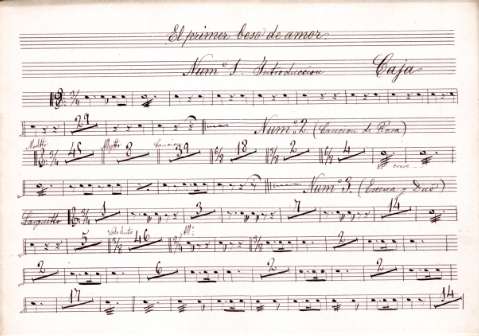 El primer beso de amor.
Num.º 1. Introduccion Caja
29 Num.º 2 (Cancion de Rosa)
45 8 39 18 2 4
Num.º 3. (Escena y Duo)
Larguetto 1 3 7 14
5 46 2
2 6 2 2
17 14